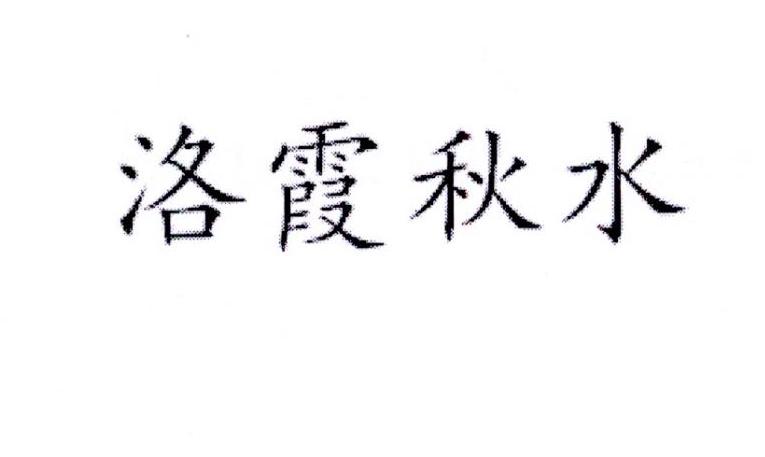 洛霞秋水